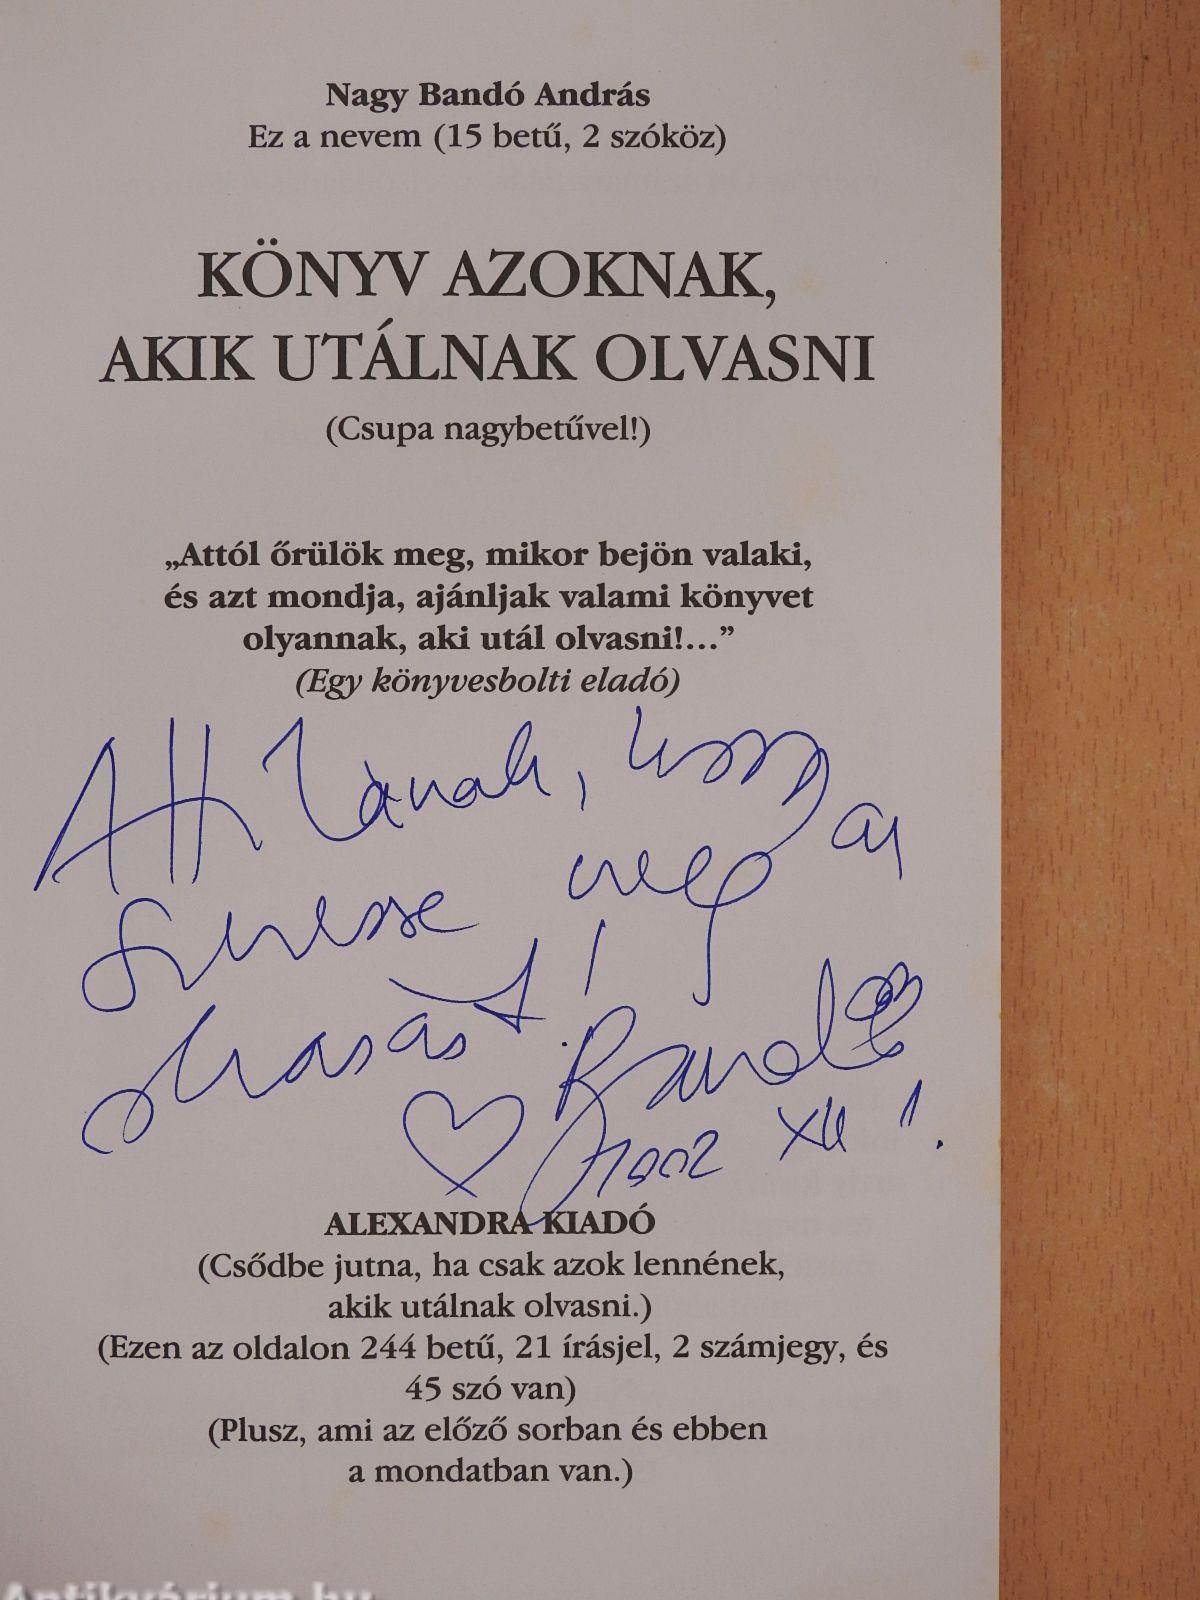 Nagy Bandó András
Ez a nevem (15 betű, 2 szóköz)
KÖNYV AZOKNAK,
AKIK UTÁLNAK OLVASNI
(Csupa nagybetűvel!)
„Attól őrülök meg, mikor bejön valaki,
és azt mondja, ajánljak valami könyvet
olyannak, aki utál olvasni!...”
(Egy könyvesbolti eladó)
Attilának, hogy
szeresse meg az
olvasást!
Bandó
2002 XII 1.
ALEXANDRA KIADÓ
(Csődbe jutna, ha csak azok lennének,
akik utálnak olvasni.)
(Ezen az oldalon 244 betű, 21 írásjel, 2 számjegy, és
45 szó van)
(Plusz, ami az előző sorban és ebben
a mondatban van.)
Antikvárium.hu